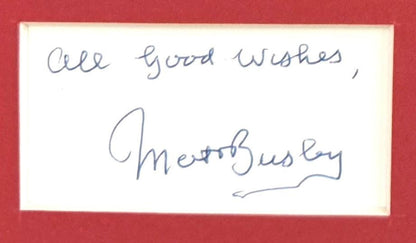 All Good Wishes,
Matt Busby